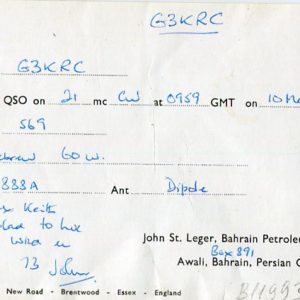 G3KRC
G3KRC
QSO on 21 mc CW at 0959 GMT on 10 Ma
569
60 w.
888A Ant Dipole
Keith
glad to
73 John
John St. Leger, Bahrain Petrole
Box 891
Awali, Bahrain, Persian G
New Road - Brentwood - Essex - England